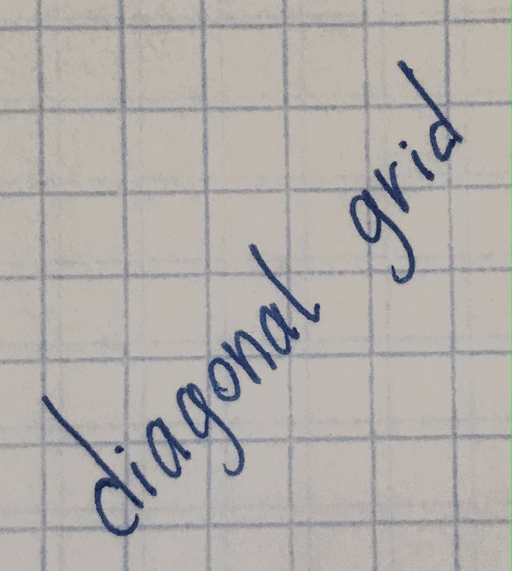 diagonal grid